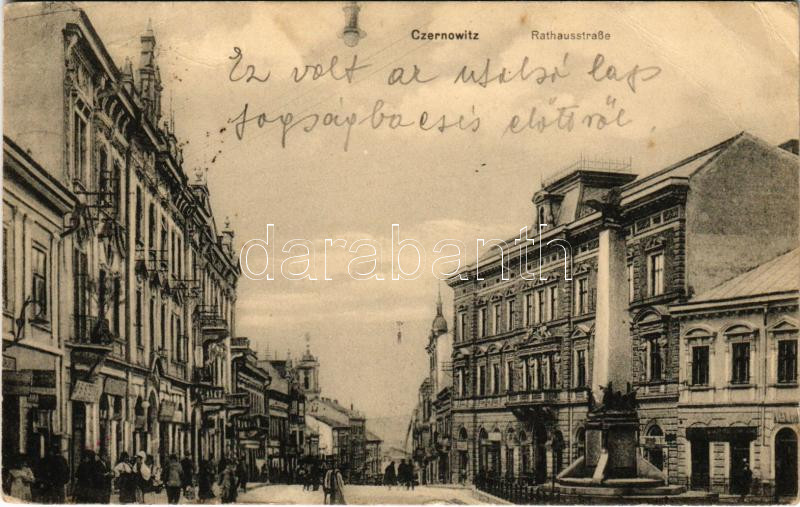 Czernowitz Rathausstraße
Ez volt az utolsó lap
fogságbaesés előttről.
darabanth